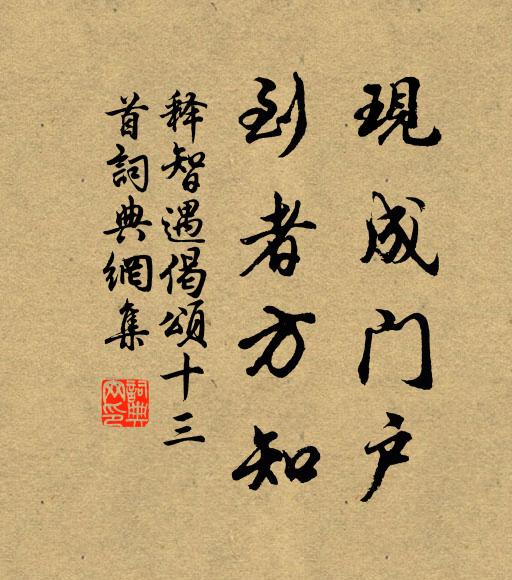 現成门户
到者方知
释智遇偈頌十三
首詞典網集
詞典
网印